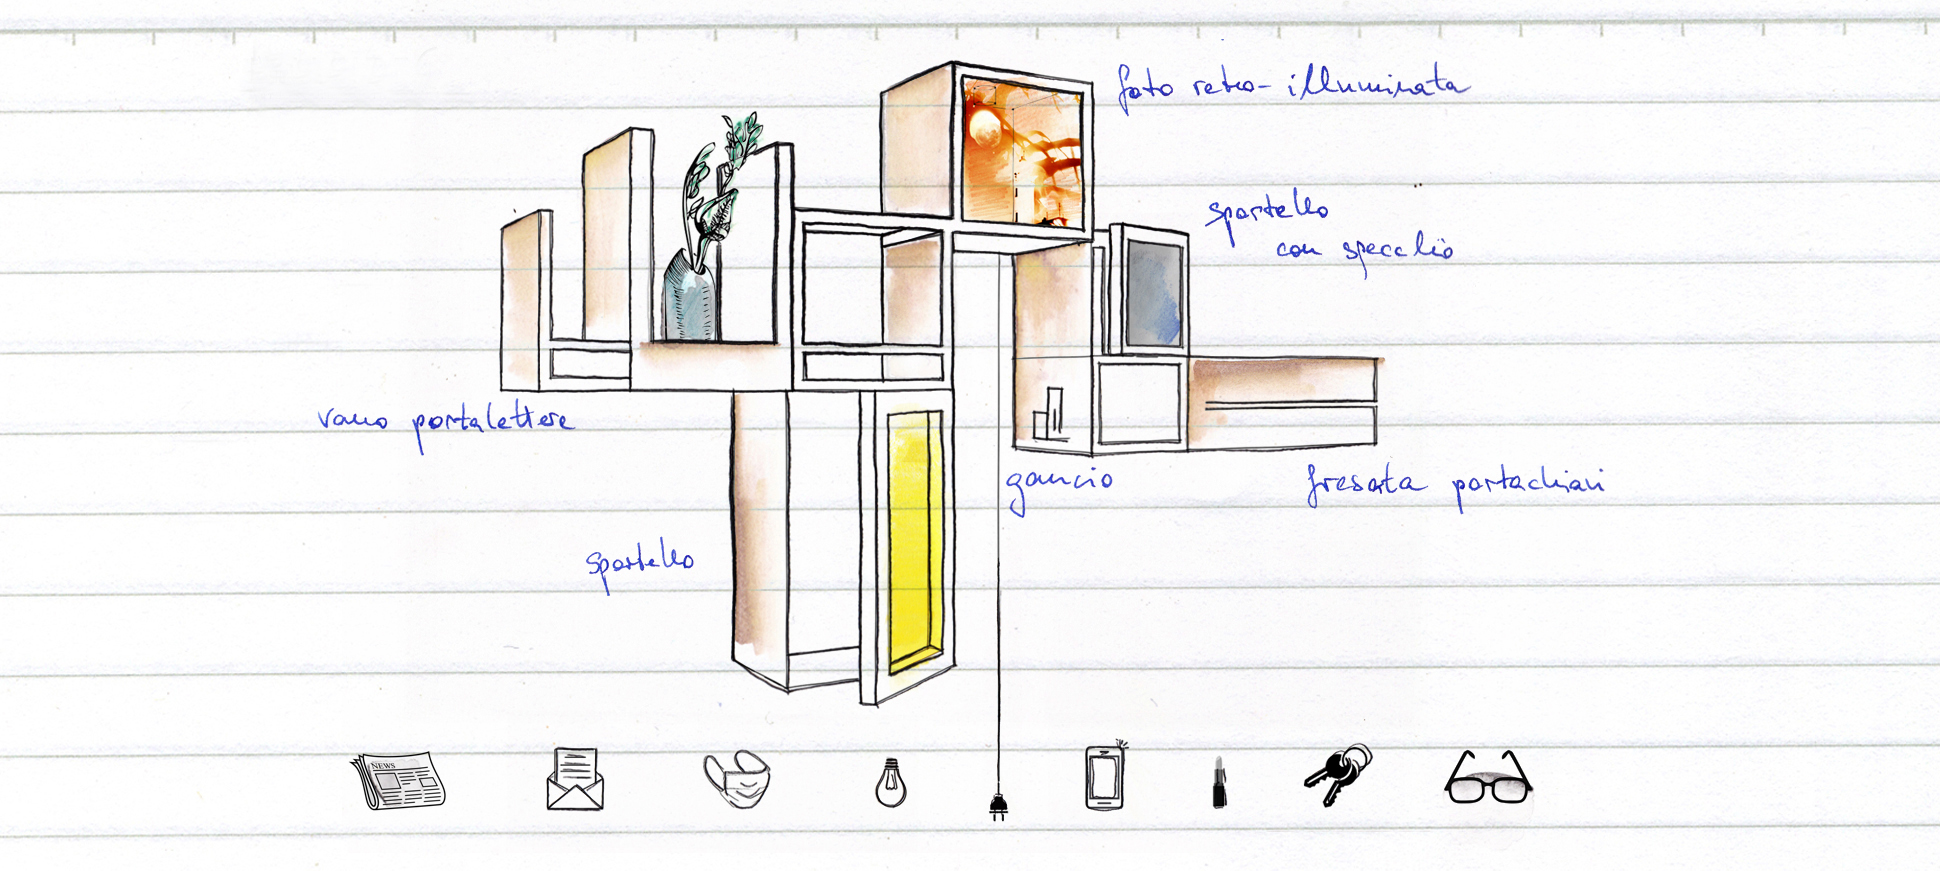 foto retro-illuminata
sportello
con specchio
vano portalettere
gancio
fresata portachiavi
sportello
NEWS